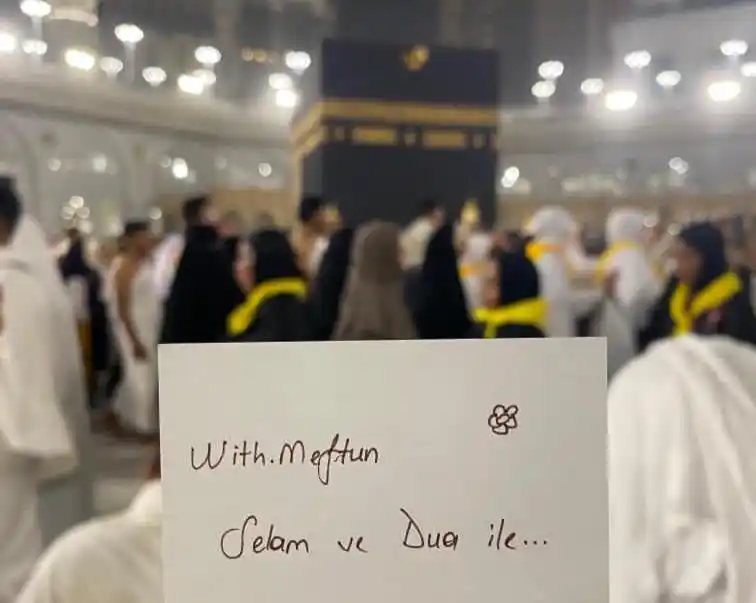 With.Meftun
Selam ve Dua ile...